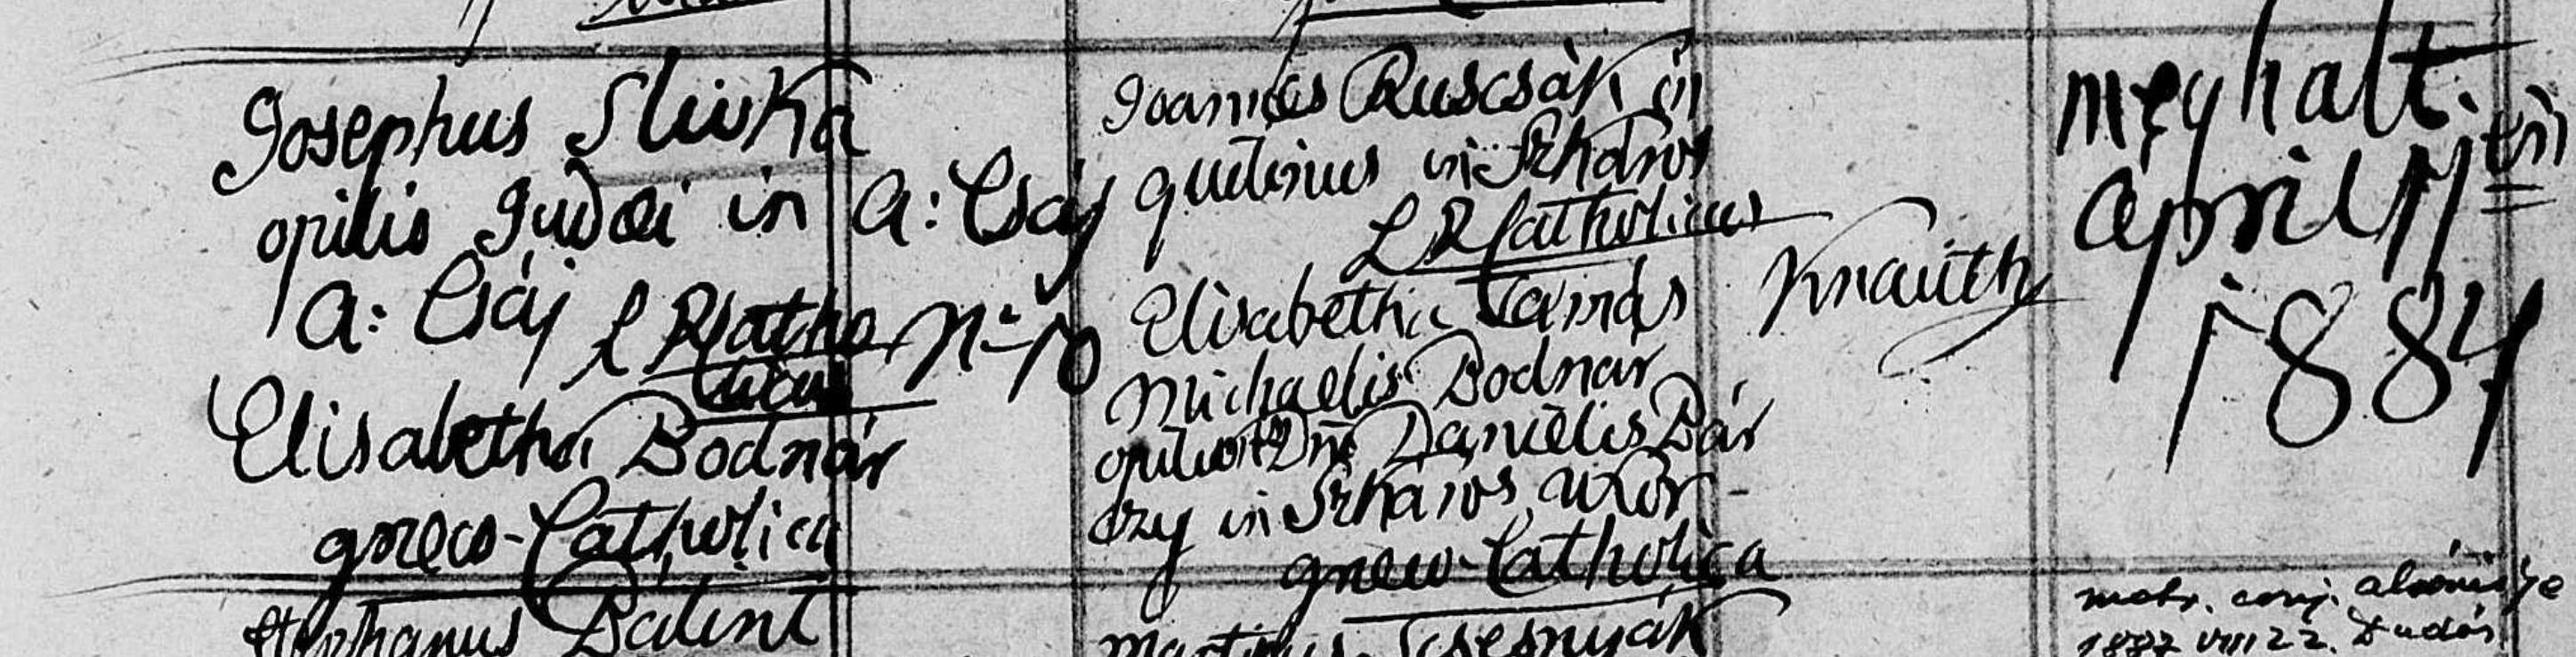 Josephus Slivka
opilis Judæi in
A: Csáj L R Catho
licus
Elisabetha Bodnár
græco-Catholica
A: Csáj
Nº 10
Joannes Ruscsák in
quilinus in Szkáros
L R Catholicus
Elisabetha Tamás
Michaelis Bodnar
opilionis Dni Danielis Bár
czy in Szkáros uxor
græco-Catholica
Knauth
meghalt.
april 11 én
1884
Stephanus Bálint
Martinus
matr. conj.
1887 VIII 22.